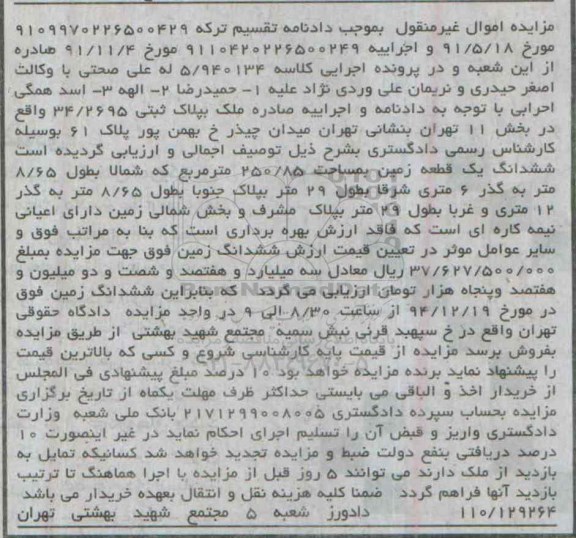 مزایده اموال غیرمنقول بموجب دادنامه تقسیم ترکه ۹۱۰۹۹۷۰۲۲۶۵۰۰۴۲۹
مورخ ۹۱/۵/۱۸ و اجراییه ۹۱۱۰۴۲۰۲۲۶۵۰۰۲۴۹ مورخ ۹۱/۱۱/۴ صادره
از این شعبه و در پرونده اجرایی کلاسه ۵/۹۴۰۱۳۴ له علی صحتی با وکالت
اصغر حیدری و نریمان علی وردی نژاد علیه ۱- حمیدرضا ۲- الهه ۳- اسد همگی
احرابی با توجه به دادنامه و اجراییه صادره ملک بپلاک ثبتی ۳۴/۲۶۹۵ واقع
در بخش ۱۱ تهران بنشانی تهران میدان چیذر خ بهمن پور پلاک ۶۱ بوسیله
کارشناس رسمی دادگستری بشرح ذیل توصیف اجمالی و ارزیابی گردیده است
ششدانگ یک قطعه زمین بمساحت ۲۵۰/۸۵ مترمربع که شمالا بطول ۸/۶۵
متر به گذر ۶ متری شرقا بطول ۲۹ متر بپلاک جنوبا بطول ۸/۶۵ متر به گذر
۱۲ متری و غربا بطول ۲۹ متر بپلاک مشرف و بخش شمالی زمین دارای اعیانی
نیمه کاره ای است که فاقد ارزش بهره برداری است که بنا به مراتب فوق و
سایر عوامل موثر در تعیین قیمت ارزش ششدانگ زمین فوق جهت مزایده بمبلغ
۳۷/۶۲۷/۵۰۰/۰۰۰ ریال معادل سه میلیارد و هفتصد و شصت و دو میلیون و
هفتصد وپنجاه هزار تومان ارزیابی می گردد. که بنابراین ششدانگ زمین فوق
در مورخ ۹۴/۱۲/۱۹ از ساعت ۸/۳۰ الی ۹ در واحد مزایده دادگاه حقوقی
تهران واقع در خ سپهبد قرنی نبش سمیه مجتمع شهید بهشتی از طریق مزایده
بفروش برسد مزایده از قیمت پایه کارشناسی شروع و کسی که بالاترین قیمت
را پیشنهاد نماید برنده مزایده خواهد بود ۱۰ درصد مبلغ پیشنهادی فی المجلس
از خریدار اخذ و الباقی می بایستی حداکثر ظرف مهلت یکماه از تاریخ برگزاری
مزایده بحساب سپرده دادگستری ۲۱۷۱۲۹۹۰۰۸۰۰۵ بانک ملی شعبه وزارت
دادگستری واریز و قبض آن را تسلیم اجرای احکام نماید در غیر اینصورت ۱۰
درصد دریافتی بنفع دولت ضبط و مزایده تجدید خواهد شد کسانیکه تمایل به
بازدید از ملک دارند می توانند ۵ روز قبل از مزایده با اجرا هماهنگ تا ترتیب
بازدید آنها فراهم گردد ضمنا کلیه هزینه نقل و انتقال بعهده خریدار می باشد
۱۱۰/۱۲۹۲۶۴ دادورز شعبه ۵ مجتمع شهید بهشتی تهران